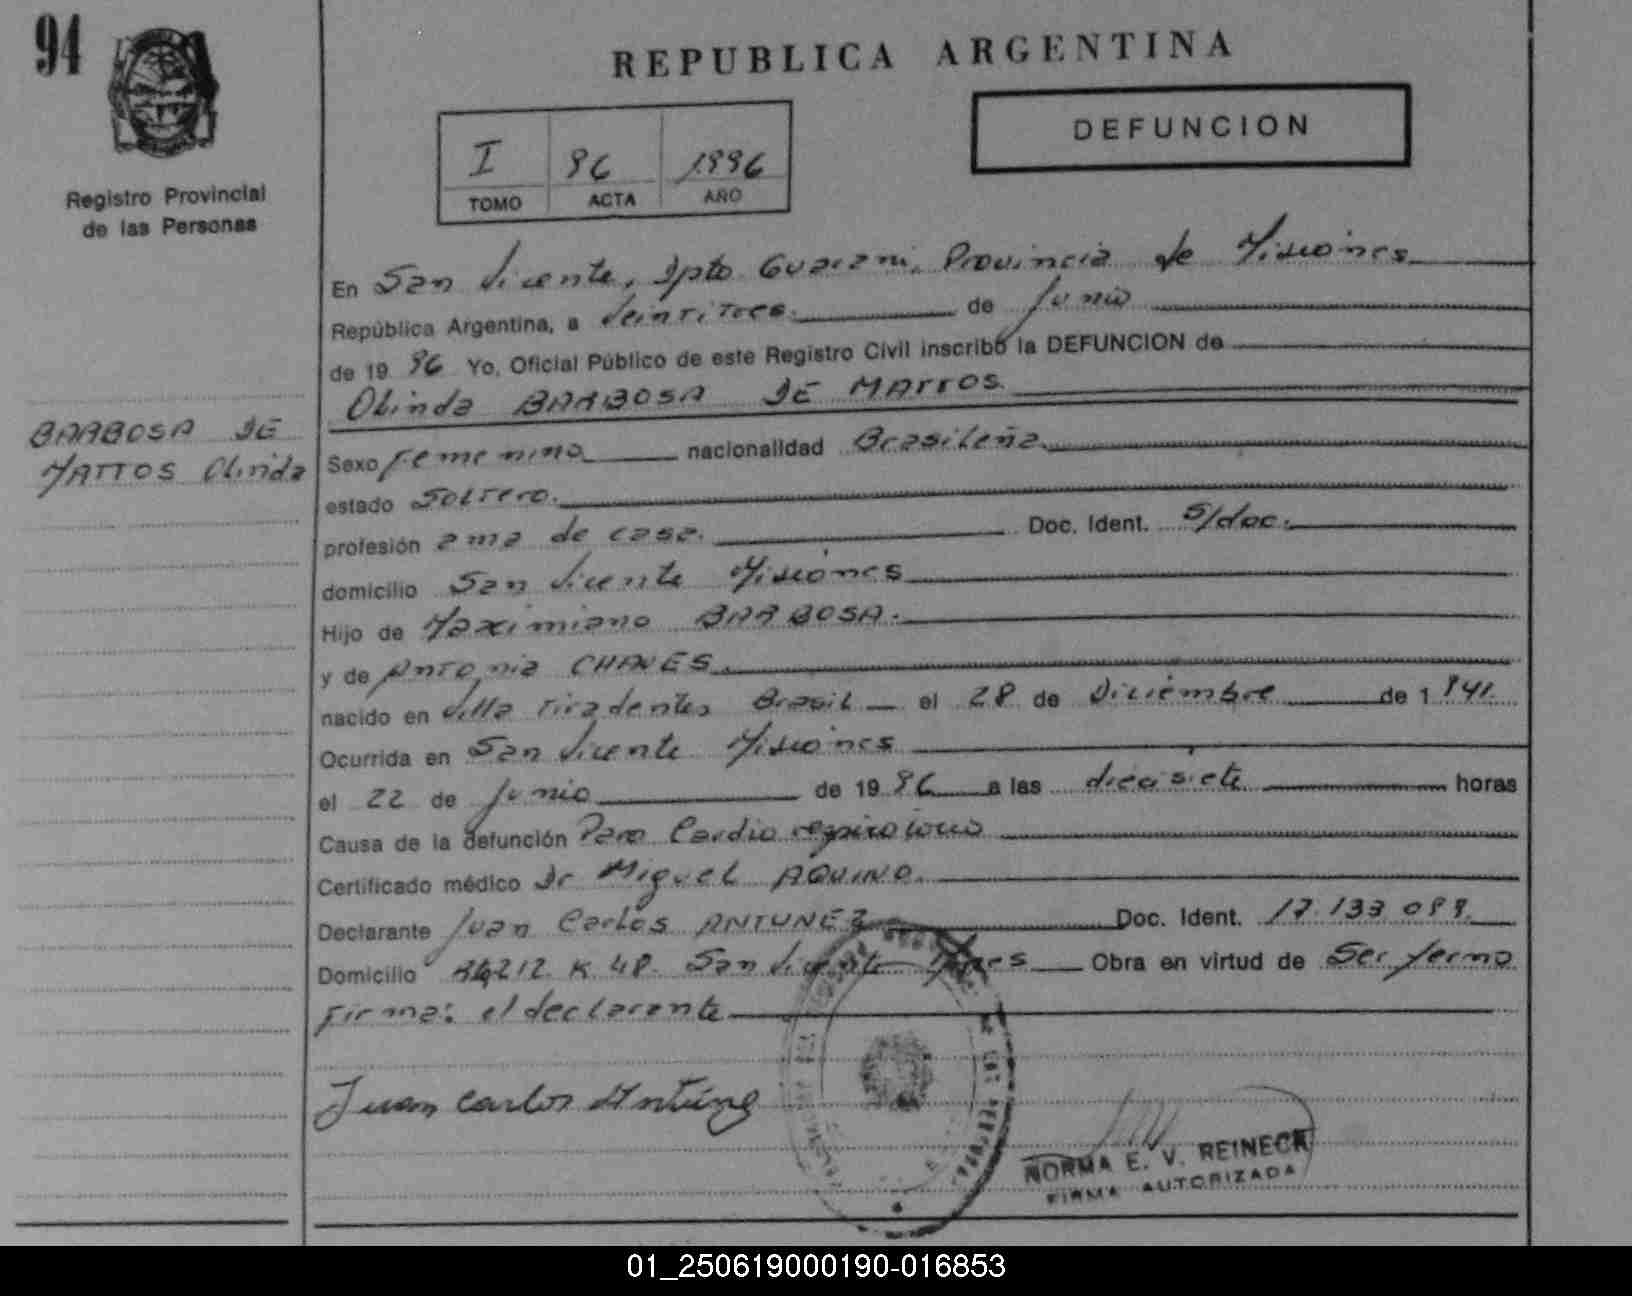 94
REPUBLICA ARGENTINA
DEFUNCION
I 96 1996
TOMO ACTA AÑO
Registro Provincial
de las Personas
BARBOSA DE
MATTOS Olinda
En San Vicente, Dpto Guarani, Provincia de Misiones
República Argentina, a Veintitres. de Junio
de 19 96 Yo, Oficial Público de este Registro Civil inscribo la DEFUNCION de
Olinda BARBOSA DE MATTOS.
Sexo Femenino nacionalidad Brasileña.
estado Soltero.
profesión ama de casa. Doc. Ident. S/doc.
domicilio San Vicente Misiones
Hijo de Maximiano BARBOSA.
y de Antonia CHAVES.
nacido en Villa Tiradentes Brasil el 28 de Diciembre de 1941
Ocurrida en San Vicente Misiones
el 22 de Junio de 19 96 a las diecisiete horas
Causa de la defunción Paro Cardio respiratorio
Certificado médico Dr Miguel AQUINO.
Declarante Juan Carlos ANTUNEZ Doc. Ident. 17.133 099
Domicilio 212 K 48. San Vicente Obra en virtud de Ser yerno
Firma: el declarante
Juan Carlos Antúnez
NORMA E. V. REINECK
FIRMA AUTORIZADA
01_250619000190-016853